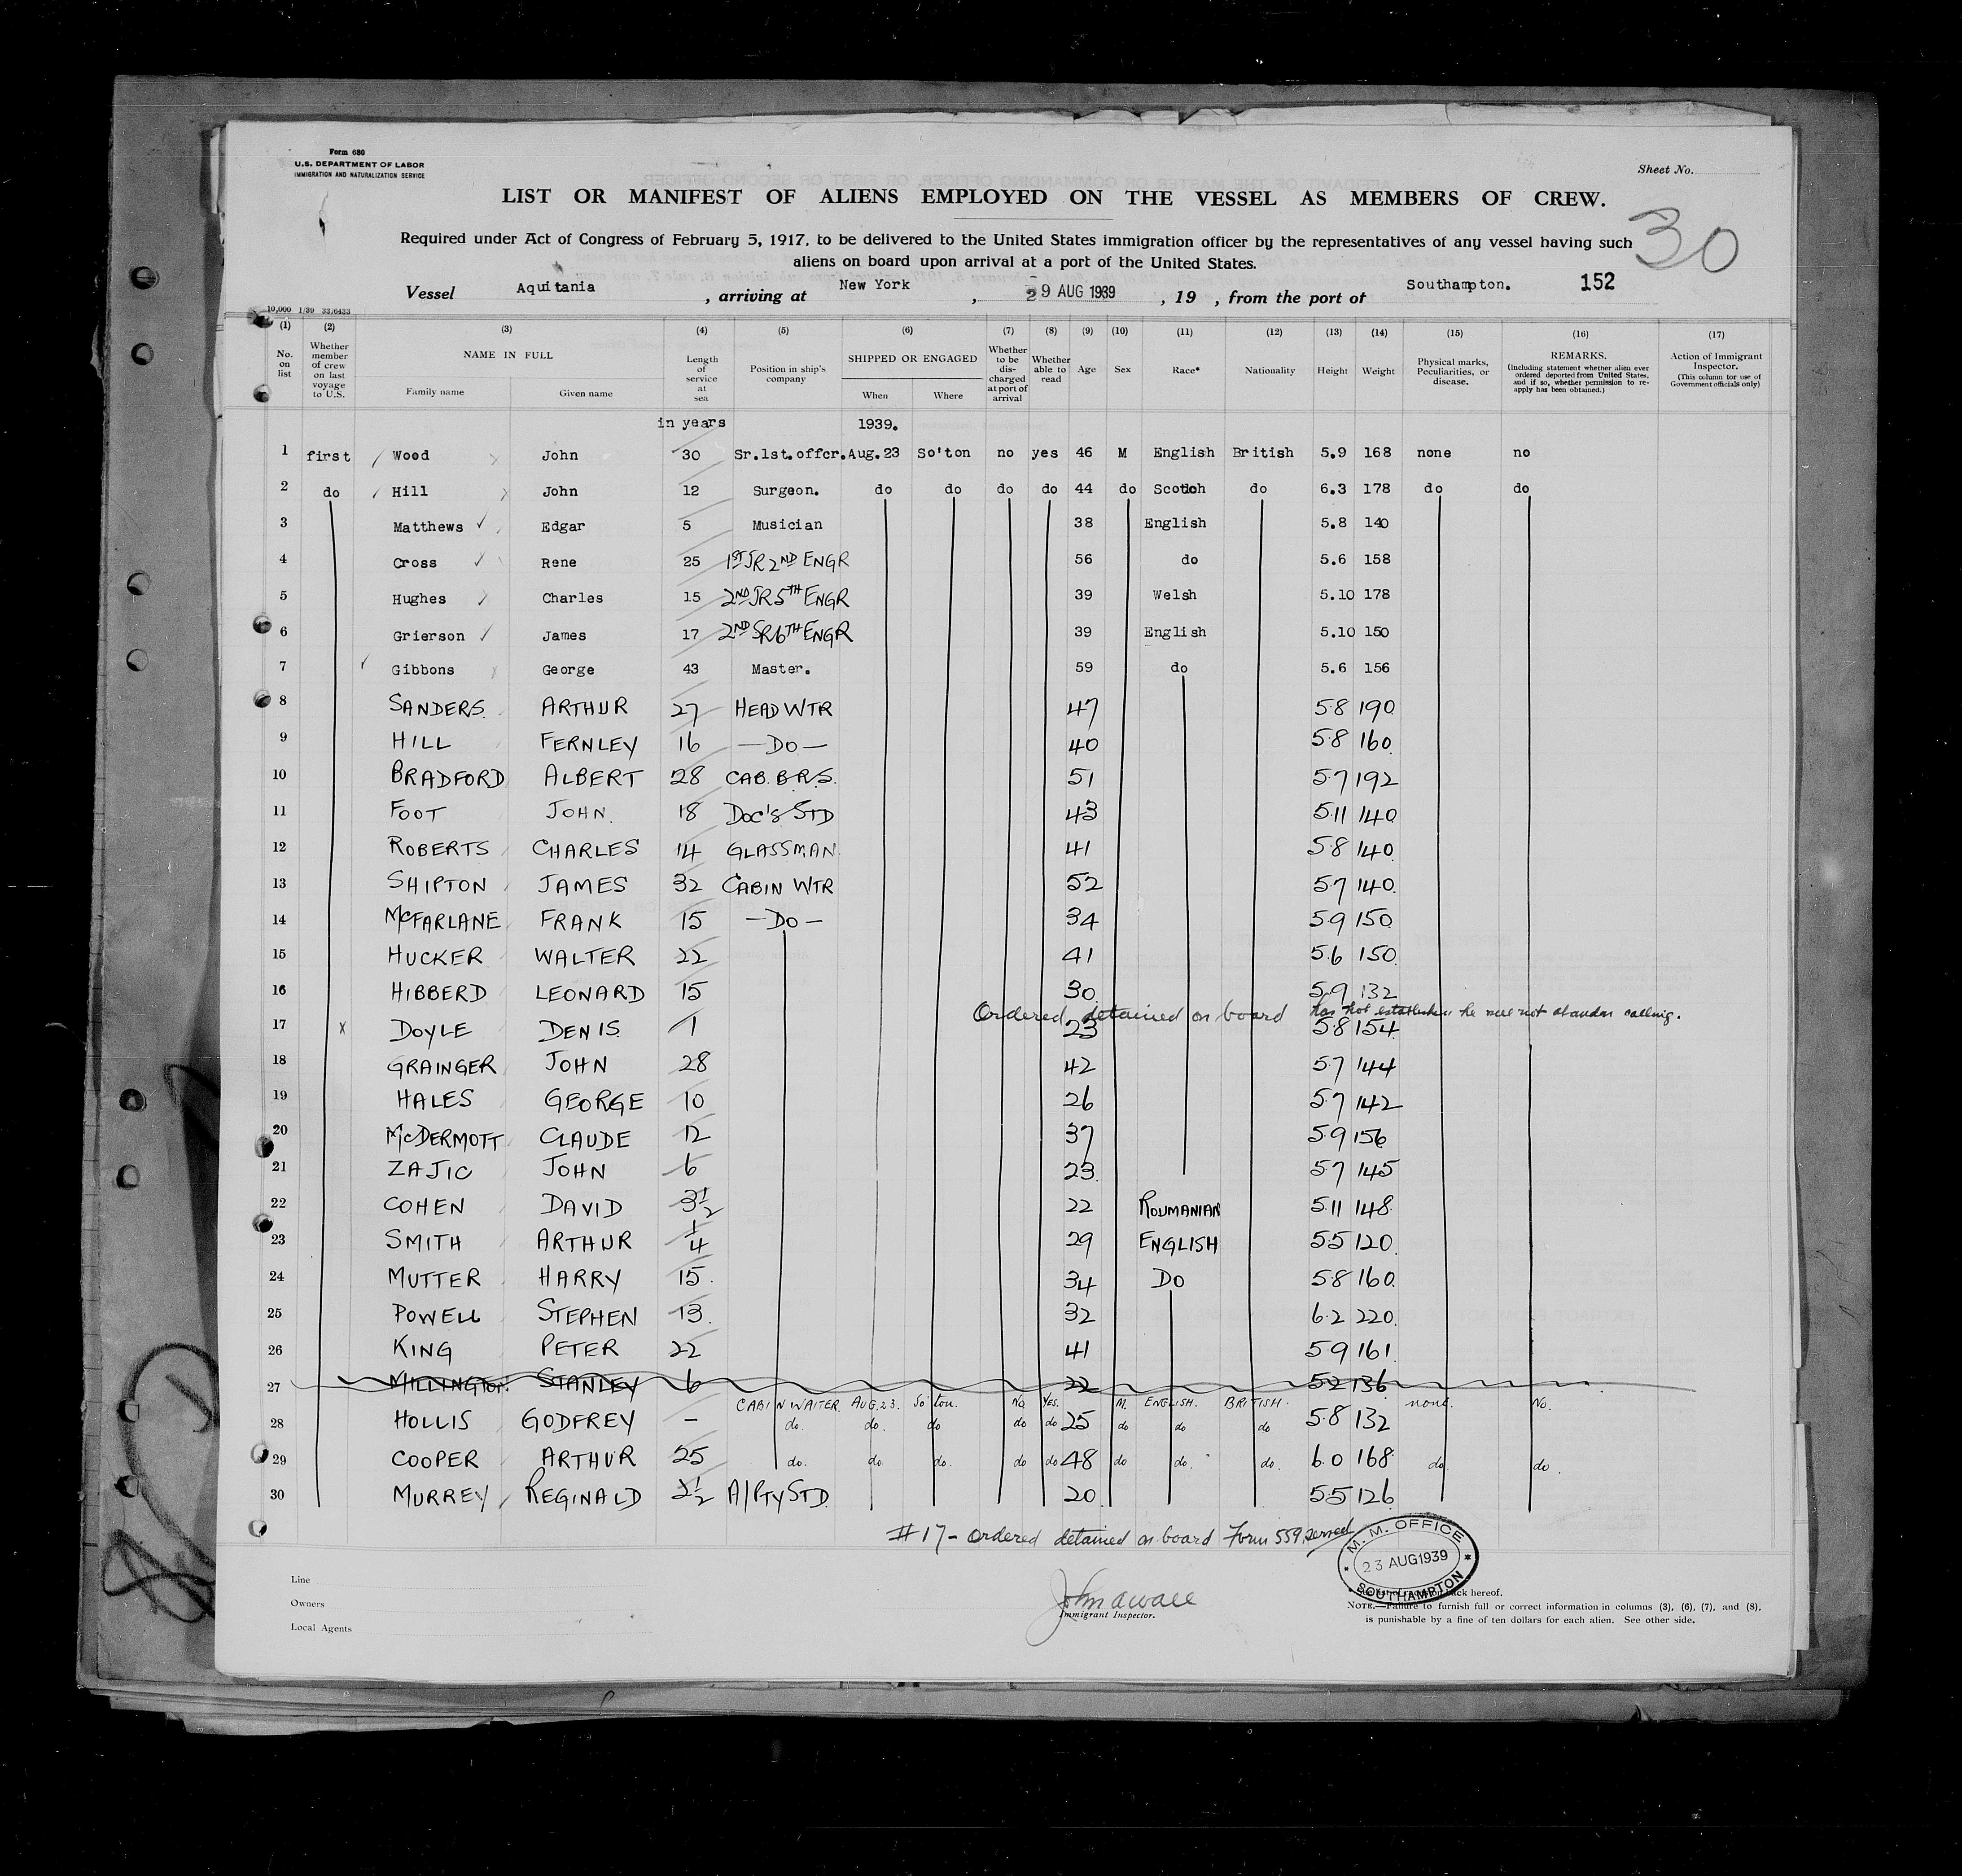 Form 680
U.S. DEPARTMENT OF LABOR
IMMIGRATION AND NATURALIZATION SERVICE
Sheet No.
LIST OR MANIFEST OF ALIENS EMPLOYED ON THE VESSEL AS MEMBERS OF CREW.
30
Required under Act of Congress of February 5, 1917, to be delivered to the United States immigration officer by the representatives of any vessel having such
aliens on board upon arrival at a port of the United States.
Vessel Aquitania , arriving at New York , 29 AUG 1939 , 19 , from the port of Southampton. 152
10,000 1/39 33/6433
(1) (2) (3) (4) (5) (6) (7) (8) (9) (10) (11) (12) (13) (14) (15) (16) (17)
No. on list
Whether member of crew on last voyage to U.S.
NAME IN FULL
Family name Given name
Length of service at sea
Position in ship's company
SHIPPED OR ENGAGED
When Where
Whether to be discharged at port of arrival
Whether able to read
Age
Sex
Race*
Nationality
Height
Weight
Physical marks, Peculiarities, or disease.
REMARKS. (Including statement whether alien ever ordered deported from United States, and if so, whether permission to reapply has been obtained.)
Action of Immigrant Inspector. (This column for use of Government officials only)
in years 1939.
1 first Wood John 30 Sr.1st.offcr. Aug.23 So'ton no yes 46 M English British 5.9 168 none no
2 do Hill John 12 Surgeon. do do do do 44 do Scotch do 6.3 178 do do
3 Matthews Edgar 5 Musician 38 English 5.8 140
4 Cross Rene 25 1ST JR 2ND ENGR 56 do 5.6 158
5 Hughes Charles 15 2ND JR 5TH ENGR 39 Welsh 5.10 178
6 Grierson James 17 2ND SR 6TH ENGR 39 English 5.10 150
7 Gibbons George 43 Master. 59 do 5.6 156
8 SANDERS ARTHUR 27 HEAD WTR 47 5.8 190
9 HILL FERNLEY 16 —DO— 40 5.8 160
10 BRADFORD ALBERT 28 CAB. B.R.S. 51 5.7 192
11 FOOT JOHN. 18 DOC'S STD 43 5.11 140
12 ROBERTS CHARLES 14 GLASSMAN. 41 5.8 140
13 SHIPTON JAMES 32 CABIN WTR 52 5.7 140
14 McFARLANE FRANK 15 —DO— 34 5.9 150
15 HUCKER WALTER 22 41 5.6 150
16 HIBBERD LEONARD 15 30 5.9 132
Ordered detained on board has not established he will not abandon calling.
17 x DOYLE DENIS 1 23 5.8 154
18 GRAINGER JOHN 28 42 5.7 144
19 HALES GEORGE 10 26 5.7 142
20 McDERMOTT CLAUDE 12 37 5.9 156
21 ZAJIC JOHN 6 23 5.7 145
22 COHEN DAVID 3½ 22 ROUMANIAN 5.11 148
23 SMITH ARTHUR ¼ 29 ENGLISH 5.5 120
24 MUTTER HARRY 15 34 DO 5.8 160
25 POWELL STEPHEN 13 32 6.2 220
26 KING PETER 22 41 5.9 161
27 MILLINGTON STANLEY 6 22 5.2 136
CABIN WAITER AUG.23. So'ton. No YES. M. ENGLISH. BRITISH. none. No.
28 HOLLIS GODFREY – do. do. do do do 25 do do do 5.8 132
29 COOPER ARTHUR 25 do. do. do. do do 48 do do. do. 6.0 168 do do.
30 MURREY REGINALD 2½ A/PTY STD. 20 5.5 126
#17 - Ordered detained on board Form 559 served
M. M. OFFICE
23 AUG 1939
SOUTHAMPTON
Line
Owners
Local Agents
Immigrant Inspector.
back hereof.
NOTE.—Failure to furnish full or correct information in columns (3), (6), (7), and (8),
is punishable by a fine of ten dollars for each alien. See other side.